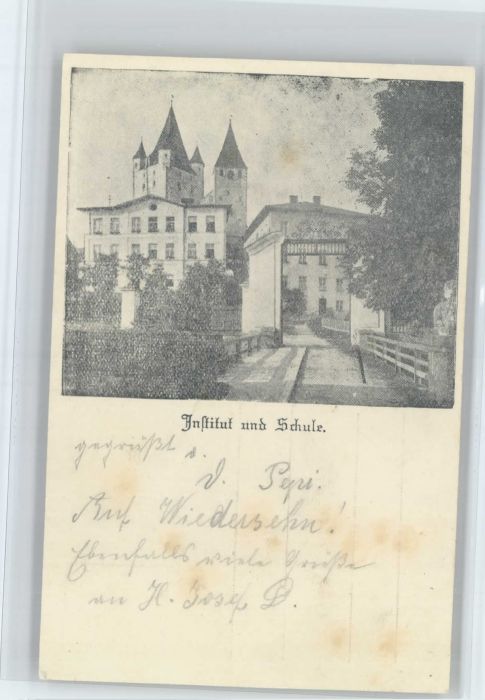 Institut und Schule.
gegrüßt v.
D. Pepi.
Auf Wiedersehn!
Ebenfalls viele Grüße
an H. Josef D.